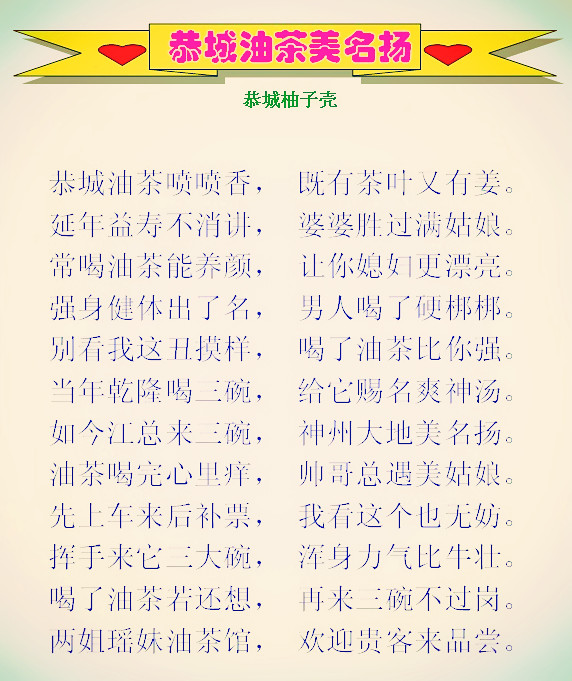 恭城油茶美名扬
恭城柚子壳
恭城油茶喷喷香， 既有茶叶又有姜。
延年益寿不消讲， 婆婆胜过满姑娘。
常喝油茶能养颜， 让你媳妇更漂亮。
强身健体出了名， 男人喝了硬梆梆。
别看我这丑摸样， 喝了油茶比你强。
当年乾隆喝三碗， 给它赐名爽神汤。
如今江总来三碗， 神州大地美名扬。
油茶喝完心里痒， 帅哥总遇美姑娘。
先上车来后补票， 我看这个也无妨。
挥手来它三大碗， 浑身力气比牛壮。
喝了油茶若还想， 再来三碗不过岗。
两姐瑶妹油茶馆， 欢迎贵客来品尝。